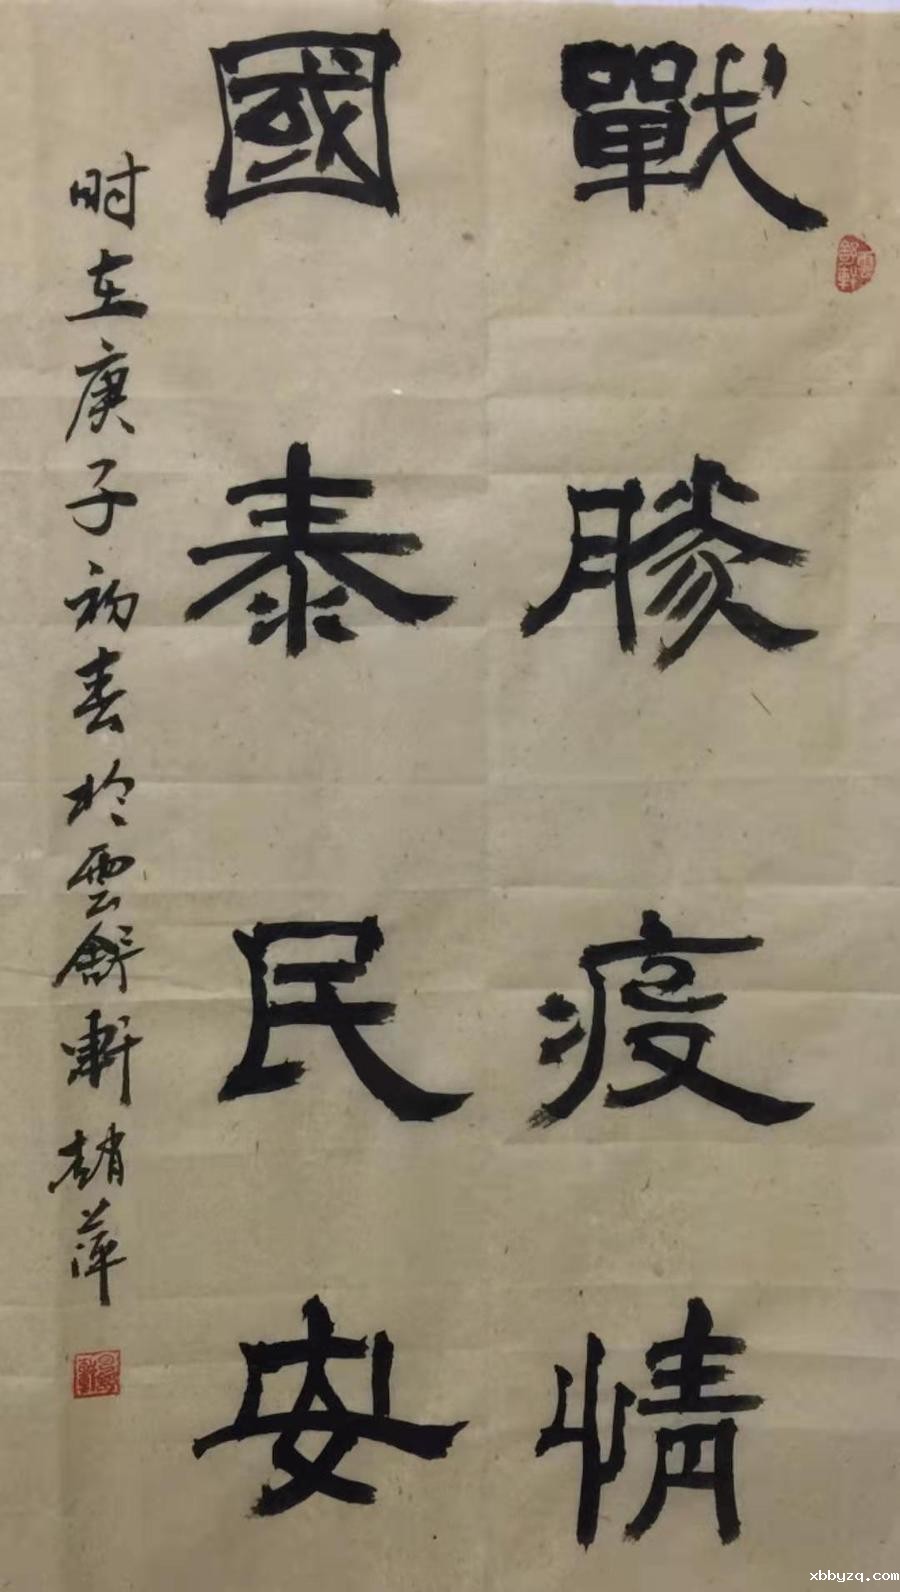 戰勝疫情
國泰民安
时在庚子初春於雲舒軒趙萍
雲舒軒
xbbyzq.com